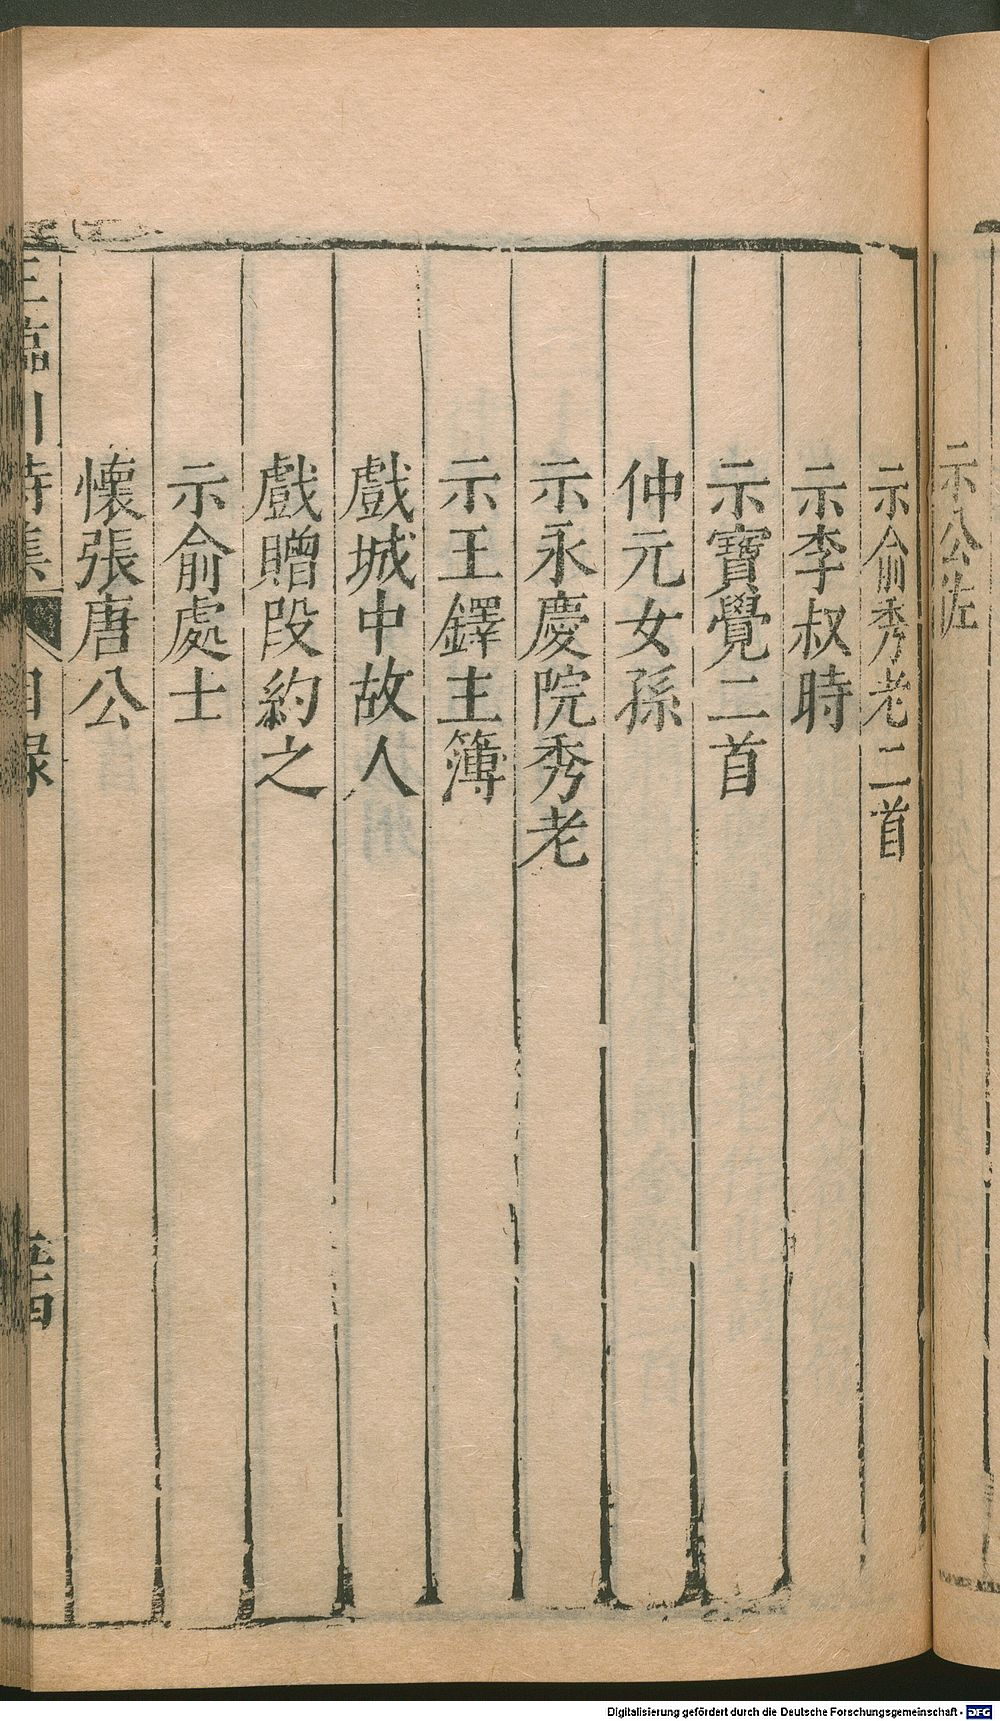 示公佐
示俞秀老二首
示李叔時
示寶覺二首
仲元女孫
示永慶院秀老
示王鐸主簿
戲城中故人
戲贈段約之
示俞處士
懷張唐公
王臨川詩集 目録
Digitalisierung gefördert durch die Deutsche Forschungsgemeinschaft - DFG